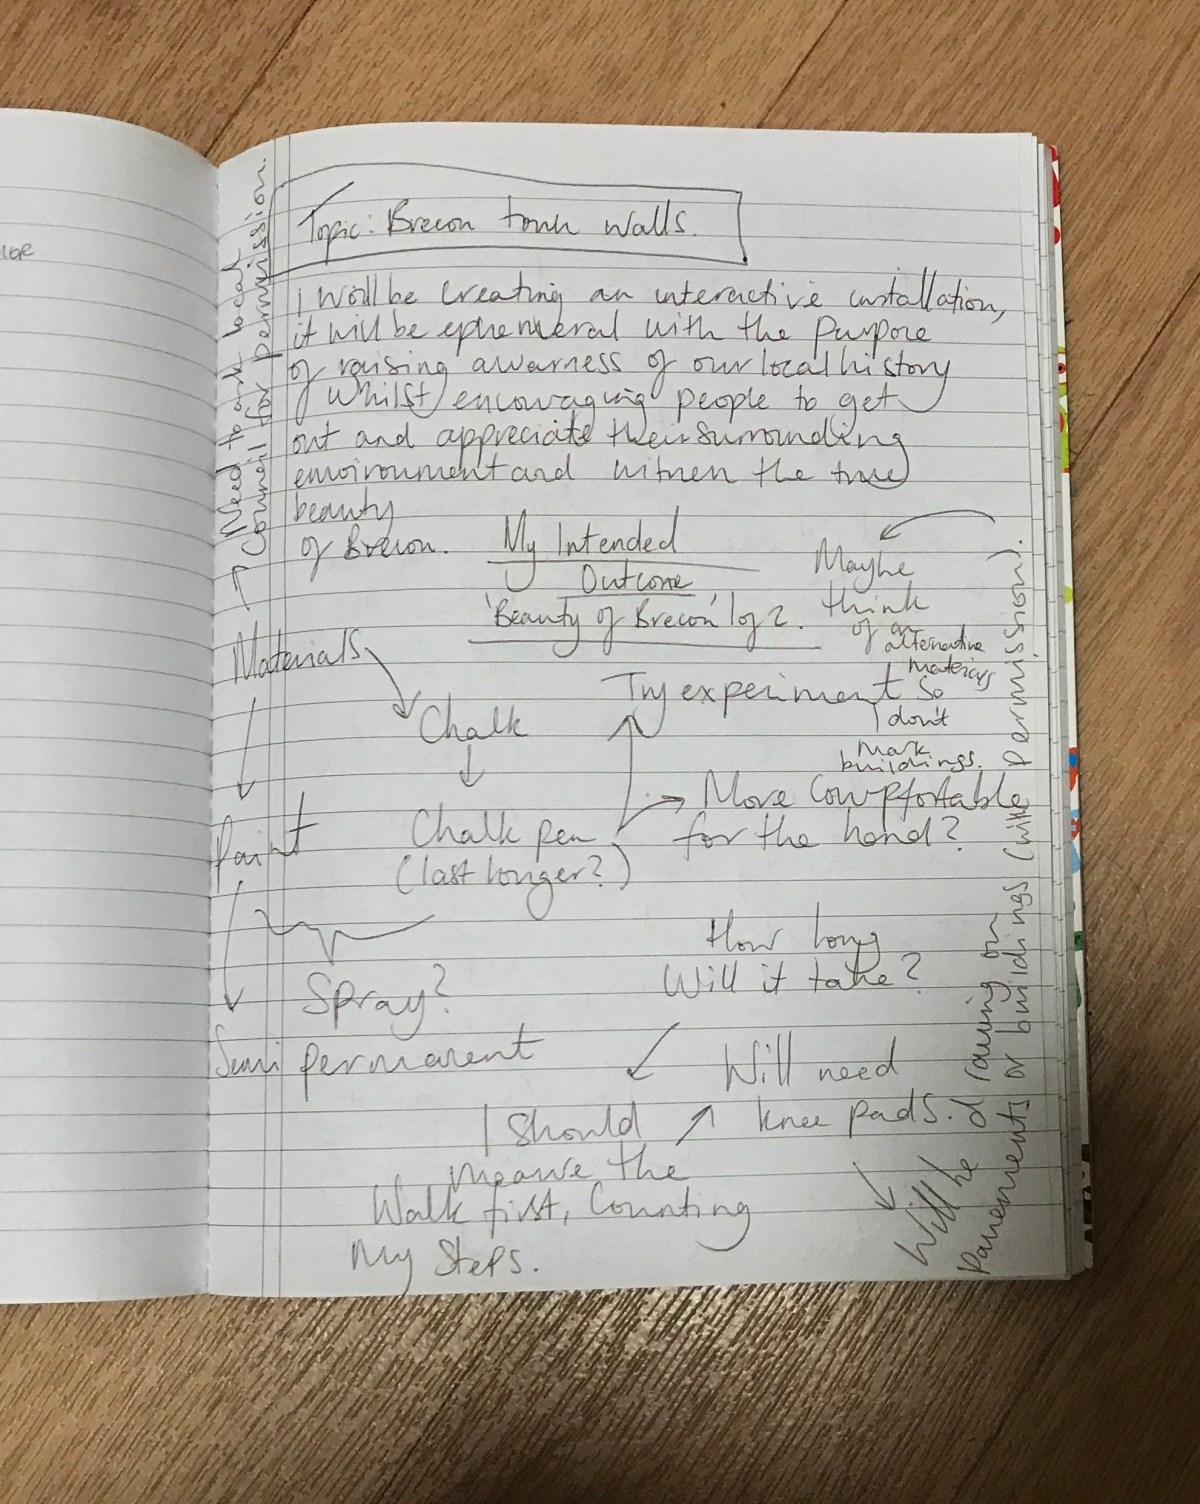 Topic: Brecon town walls.
I will be creating an interactive installation,
it will be ephemeral with the purpose
of raising awarness of our local history
whilst encouraging people to get
out and appreciate their surrounding
environment and witness the true
beauty
of Brecon.
Need to ask local
Council for permission.
My Intended
Outcome
'Beauty of Brecon' 1 of 2.
Maybe
think
of an
alternative
materials
so
I don't
mark
buildings.
Materials
Try experiment
Chalk
Paint
Chalk pen
(last longer?)
More compfortable
for the hand?
Spray?
Semi permanent
How long
Will it take?
Will need
knee pads.
I should
measure the
Walk first, counting
my steps.
Will be drawing on
pavements or buildings (with permission).